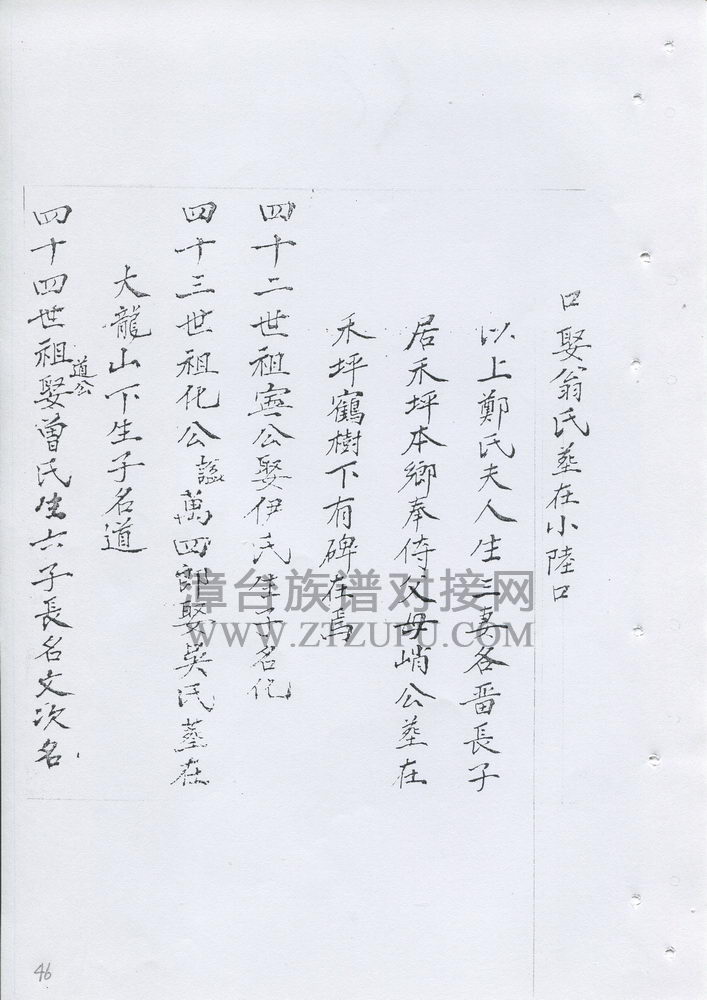 口娶翁氏塟在小陸口
以上鄭氏夫人生三妻各畱長子
居禾坪本鄉奉侍父母峭公塟在
禾坪鶴樹下有碑在焉
四十二世祖寔公娶伊氏生子名化
四十三世祖化公諡萬四郎娶吳氏塟在
大龍山下生子名道
四十四世祖道公娶曾氏生六子長名文次名
漳台族谱对接网
WWW.ZTZUPU.COM
46